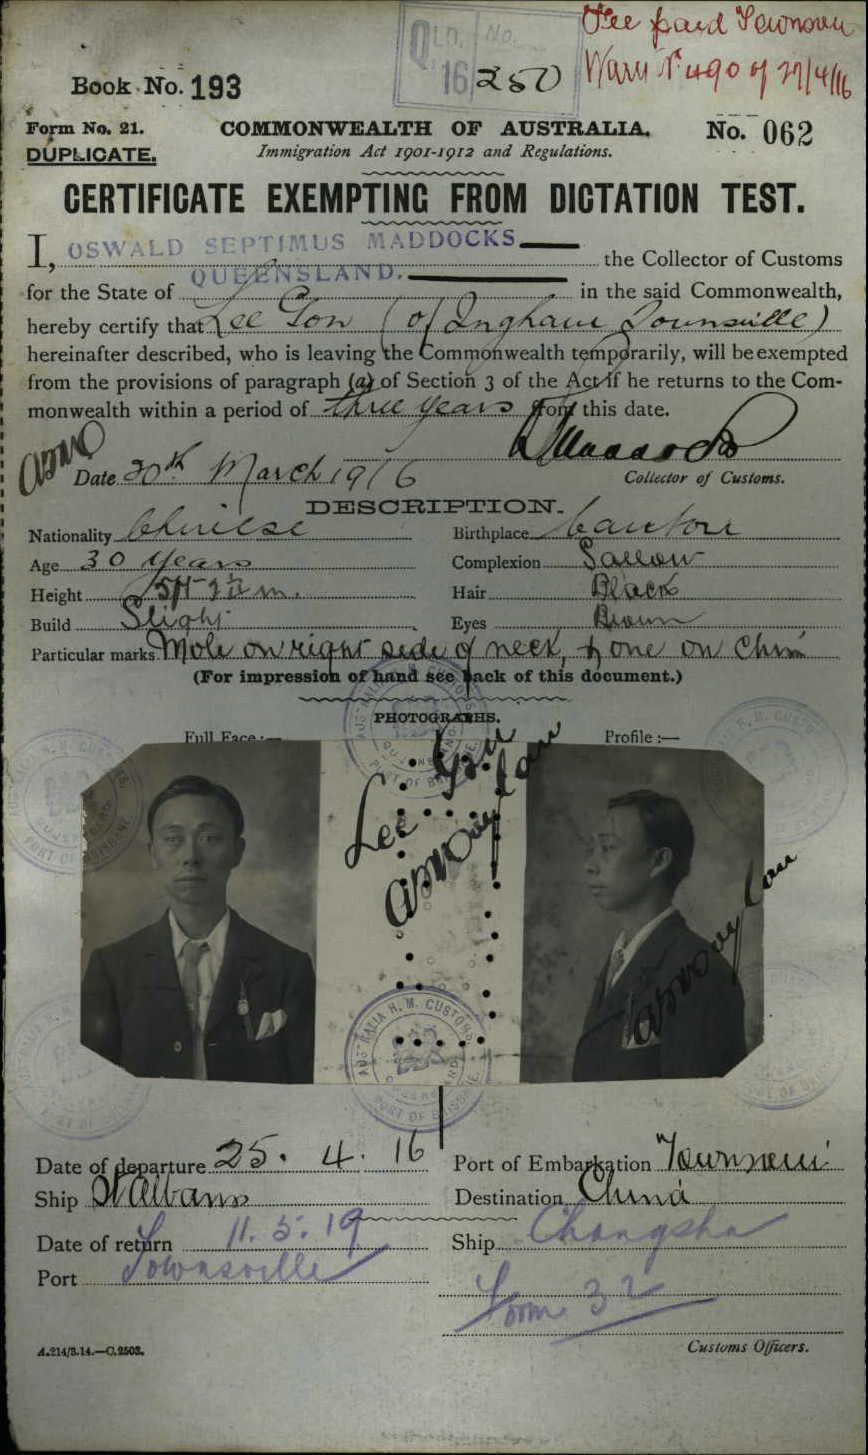 QLD. No.
16 250
Fee paid Townsville
27/4/16
Book No. 193
Form No. 21.
COMMONWEALTH OF AUSTRALIA.
No. 062
DUPLICATE.
Immigration Act 1901-1912 and Regulations.
CERTIFICATE EXEMPTING FROM DICTATION TEST.
I, OSWALD SEPTIMUS MADDOCKS the Collector of Customs
for the State of QUEENSLAND. in the said Commonwealth,
hereby certify that Lee Gon (of Ingham Townsville)
hereinafter described, who is leaving the Commonwealth temporarily, will be exempted
from the provisions of paragraph (a) of Section 3 of the Act if he returns to the Com-
monwealth within a period of three years from this date.
Date 30th March 1916
Collector of Customs.
DESCRIPTION.
Nationality Chinese Birthplace Canton
Age 30 years Complexion Sallow
Height Hair Black
Build Slight Eyes Brown
Particular marks Mole on right side of neck, & one on Chin
(For impression of hand see back of this document.)
PHOTOGRAPHS.
Full Face:— Profile:—
Lee Gon
AUSTRALIA H. M. CUSTOMS
QUEENSLAND
PORT OF BRISBANE
Date of departure 25. 4. 16 Port of Embarkation Townsville
Ship St Albans Destination China
Date of return 11. 5. 19 Ship Changsha
Port Townsville
Form 32
A.214/3.14.—C.2503.
Customs Officers.